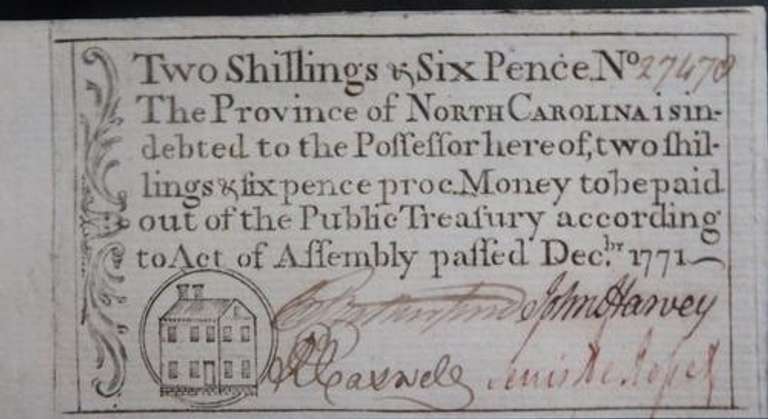 Two Shillings & Six Pence. Nº 27470
The Province of NORTH CAROLINA is in-
debted to the Poſſeſſor hereof, two ſhil-
lings & ſix pence proc. Money to be paid
out of the Public Treaſury according
to Act of Aſſembly paſſed Dec.br 1771
John Harvey
R Caswell